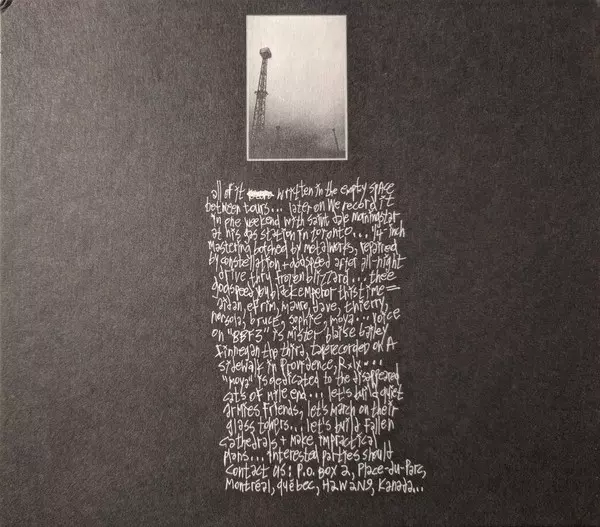 all of it written in the empty space
between tours... later on we record it
in one weekend with saint dale morningstar
at his gas station in toronto... 1/4-inch
mastering botched by metalworks, repaired
by constellation + godspeed after all-night
drive thru frozen blizzard... thee
godspeed you black emperor this time =
aidan, efrim, mauro, dave, thierry,
norsola, bruce, sophie, moya... voice
on "BBF3" is mister blaise bailey
finnegan the third, taperecorded on A
sidewalk in Providence, R.I....
"moya" is dedicated to the disappeared
cats of mile end... let's build quiet
armies friends, let's march on their
glass towers... let's build fallen
cathedrals + make impractical
plans... interested parties should
contact us: P.O. Box 2, Place-du-Parc,
Montréal, québec, H2W2N9, Kanada...